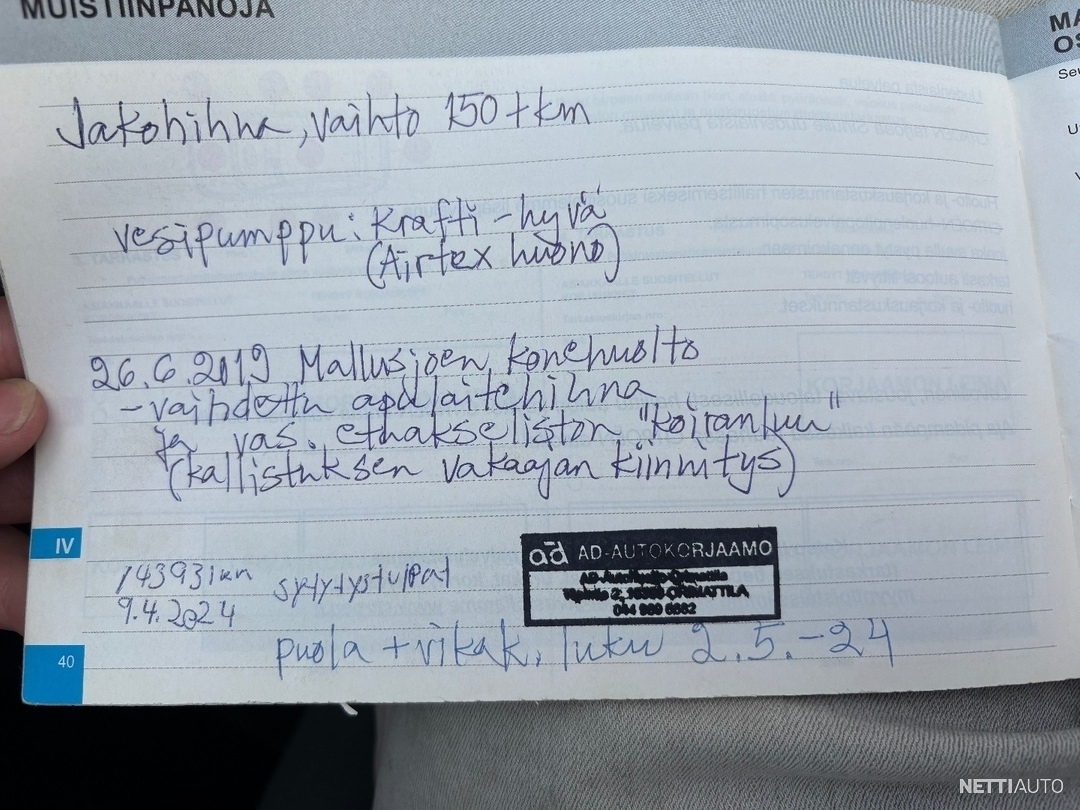 MUISTIINPANOJA
MA
OS
Ser
Jakohihna, vaihto 150 tkm
vesipumppu: Krafti - hyvä
(Airtex huono)
26.6.2019 Mallusjoen konehuolto
- vaihdettu apulaitehihna
ja vas. etuakseliston "koiranluu"
(kallistuksen vakaajan kiinnitys)
IV
143931km sytytystulpat
9.4.2024
ad AD-AUTOKORJAAMO
ORIMATTILA
puola + vikak. luku 2.5.-24
40
NETTIAUTO